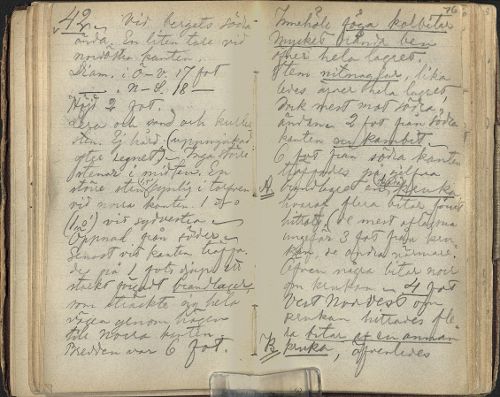 42. Vid bergets södra
ända. En liten tall vid
nordöstra kanten.
Diam. i Ö-V. 17 fot
" n-S. 18 "
Höjd 2 fot.
Lera och sand och kuller
sten. Ej hård (uppmjukad
af regnet). Inga större
stenar i midten. En
större sten synlig i torfven
vid norra kanten. 1
vid sydvestra
Öppnad från söder.
Genast vid kanten träffa
des på 1 fots djup ett
starkt brandlager,
som sträckte sig hela
vägen genom högen
till norra kanten.
Bredden var 6 fot.
76
Innehöll föga kolbitar
Mycket brända ben
öfver hela lagret.
Item nitnaglar, lika
ledes öfver hela lagret,
dock mest mot södra
ändan. 2 fot från södra
kanten en kambit.
6 fot från södra kanten
träffades på sjelfva
A) brandlagret en kruka
hvaraf flera bitar
hittats (de mest aflägsna
ungefär 3 fot från kru
kan, de andra närmare.
Äfven några bitar
om krukan. 4 fot
Vest Nordvest om
krukan hittades fle
ra bitar af en annan
B) kruka, äfvenledes